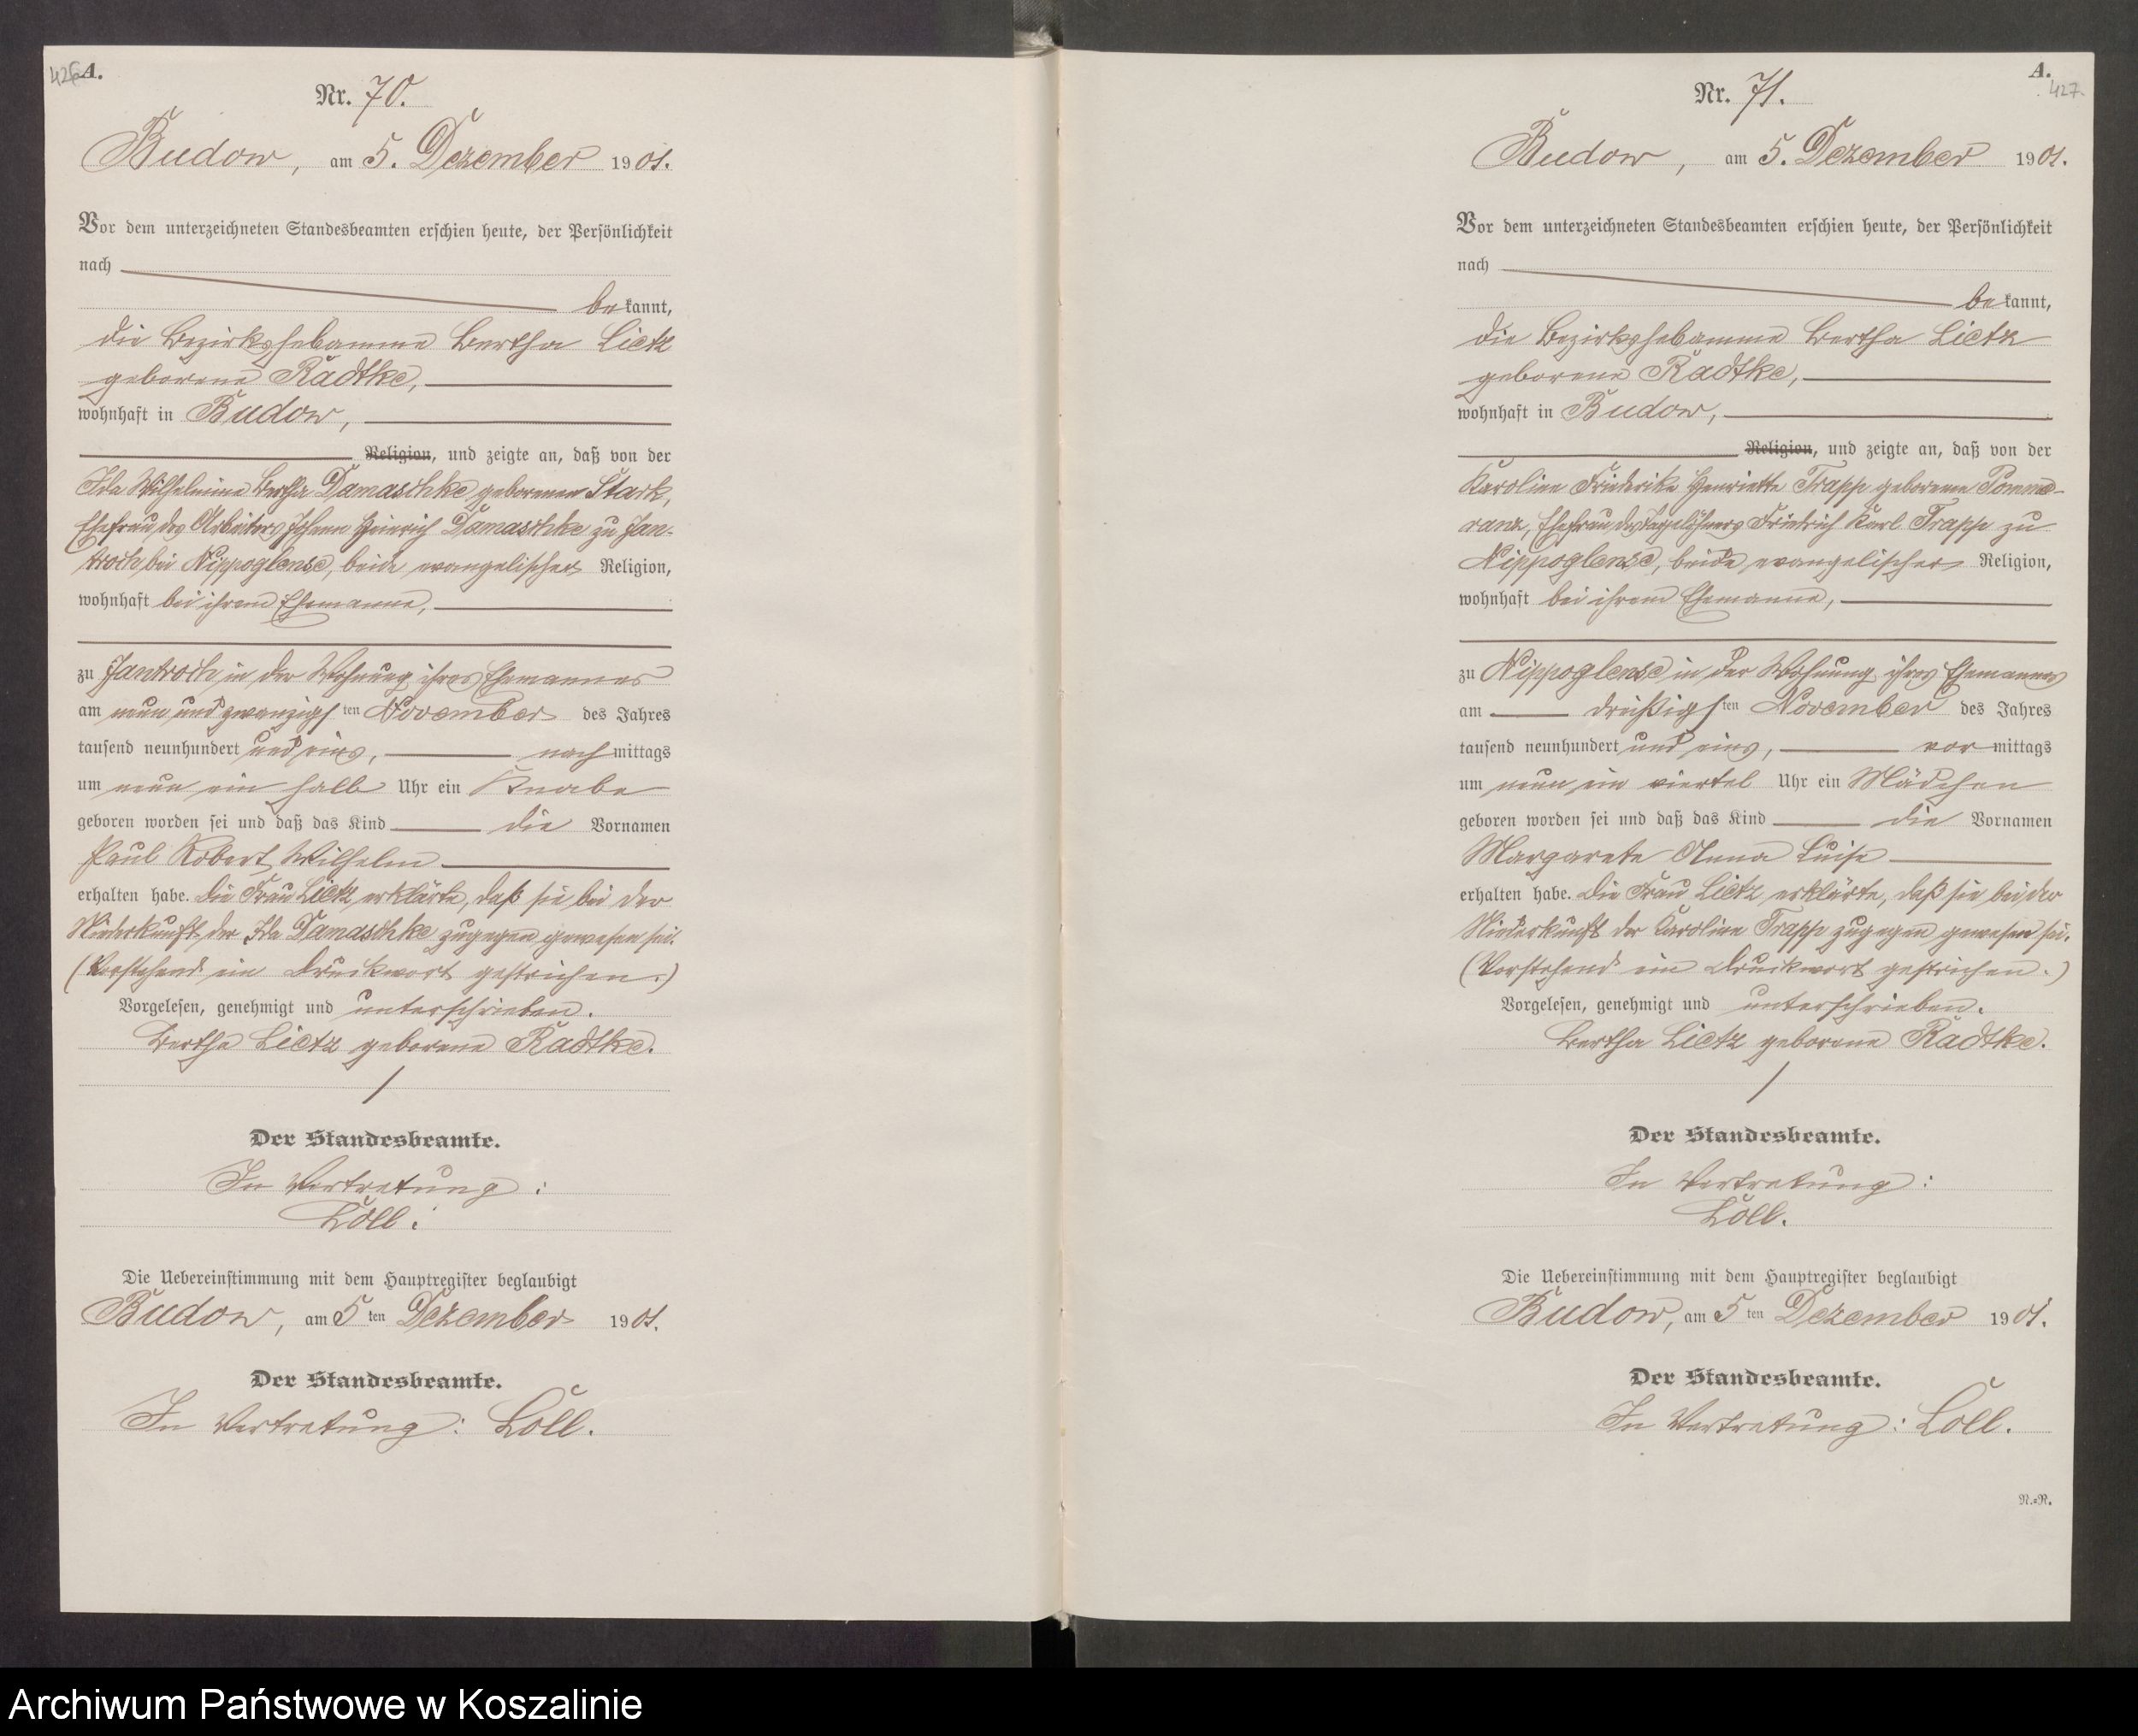 426
A.
Nr. 70.
Budow, am 5. Dezember 1901.
Vor dem unterzeichneten Standesbeamten erschien heute, der Persönlichkeit
nach
bekannt,
die Bezirkshebamme Bertha Lietz
geborene Radtke,
wohnhaft in Budow,
Religion, und zeigte an, daß von der
Ida Wilhelmine Bertha Damaschke geborenen Stark,
Ehefrau des Arbeiters Johann Heinrich Damaschke zu Jan-
troch bei Nippoglense, beide evangelischer Religion,
wohnhaft bei ihrem Ehemanne,
zu Jantroch in der Wohnung ihres Ehemannes
am neun und zwanzigsten November des Jahres
tausend neunhundert und eins, nachmittags
um neun ein halb Uhr ein Knabe
geboren worden sei und daß das Kind die Vornamen
Paul Robert Wilhelm
erhalten habe. Die Frau Lietz erklärte, daß sie bei der
Niederkunft der Ida Damaschke zugegen gewesen sei.
(Vorstehend ein Druckwort gestrichen.)
Vorgelesen, genehmigt und unterschrieben.
Bertha Lietz geborene Radtke.
Der Standesbeamte.
In Vertretung:
Loll.
Die Uebereinstimmung mit dem Hauptregister beglaubigt
Budow, am 5ten Dezember 1901.
Der Standesbeamte.
In Vertretung: Loll.
A.
427.
Nr. 71.
Budow, am 5. Dezember 1901.
Vor dem unterzeichneten Standesbeamten erschien heute, der Persönlichkeit
nach
bekannt,
die Bezirkshebamme Bertha Lietz
geborene Radtke,
wohnhaft in Budow,
Religion, und zeigte an, daß von der
Karoline Friederike Henriette Trapp geborenen Pomme-
ranz, Ehefrau des Tagelöhners Friedrich Karl Trapp zu
Nippoglense, beide evangelischer Religion,
wohnhaft bei ihrem Ehemanne,
zu Nippoglense in der Wohnung ihres Ehemannes
am dreißigsten November des Jahres
tausend neunhundert und eins, vormittags
um neun ein viertel Uhr ein Mädchen
geboren worden sei und daß das Kind die Vornamen
Margarete Anna Luise
erhalten habe. Die Frau Lietz erklärte, daß sie bei der
Niederkunft der Karoline Trapp zugegen gewesen sei.
(Vorstehend ein Druckwort gestrichen.)
Vorgelesen, genehmigt und unterschrieben.
Bertha Lietz geborene Radtke.
Der Standesbeamte.
In Vertretung:
Loll.
Die Uebereinstimmung mit dem Hauptregister beglaubigt
Budow, am 5ten Dezember 1901.
Der Standesbeamte.
In Vertretung: Loll.
N.=R.
Archiwum Państwowe w Koszalinie